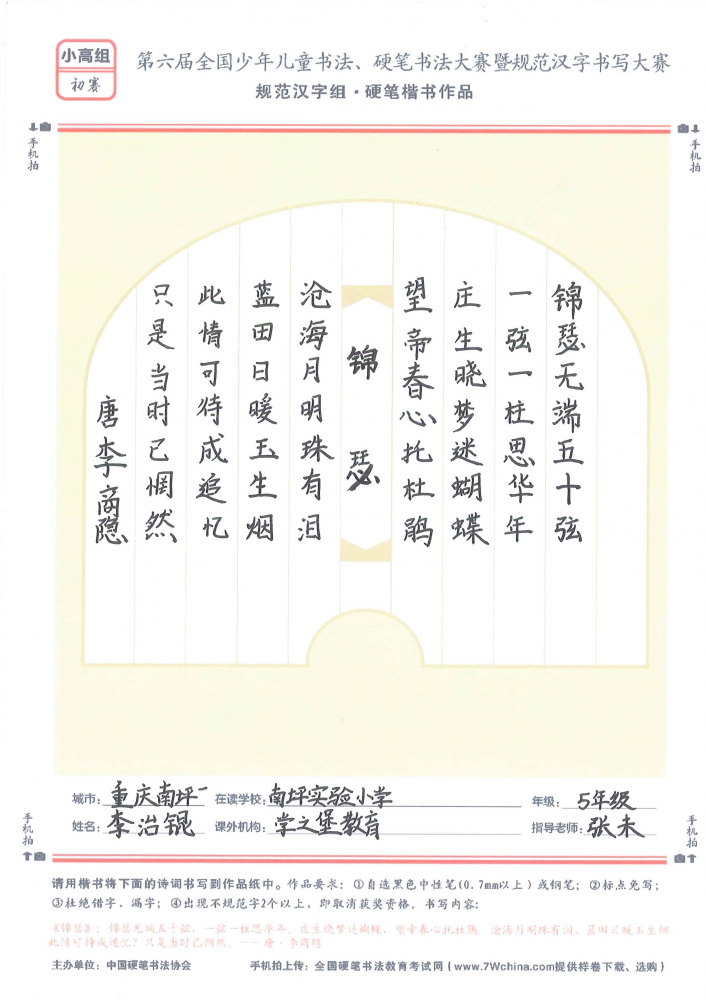 小高组
初赛
第六届全国少年儿童书法、硬笔书法大赛暨规范汉字书写大赛
规范汉字组·硬笔楷书作品
手机拍
手机拍
锦瑟无端五十弦
一弦一柱思华年
庄生晓梦迷蝴蝶
望帝春心托杜鹃
锦瑟
沧海月明珠有泪
蓝田日暖玉生烟
此情可待成追忆
只是当时已惘然
唐李商隐
城市：重庆南坪一 在读学校：南坪实验小学 年级：5年级
姓名：李治锟 课外机构：学之堡教育 指导老师：张未
手机拍
手机拍
请用楷书将下面的诗词书写到作品纸中。作品要求：①自选黑色中性笔(0.7mm以上)或钢笔；②标点免写；
③杜绝错字、漏字；④出现不规范字2个以上，即取消获奖资格。书写内容：
《锦瑟》：锦瑟无端五十弦，一弦一柱思华年。庄生晓梦迷蝴蝶，望帝春心托杜鹃。沧海月明珠有泪，蓝田日暖玉生烟
此情可待成追忆？只是当时已惘然。——唐·李商隐
主办单位：中国硬笔书法协会 手机拍上传：全国硬笔书法教育考试网（www.7Wchina.com提供样卷下载、选购）